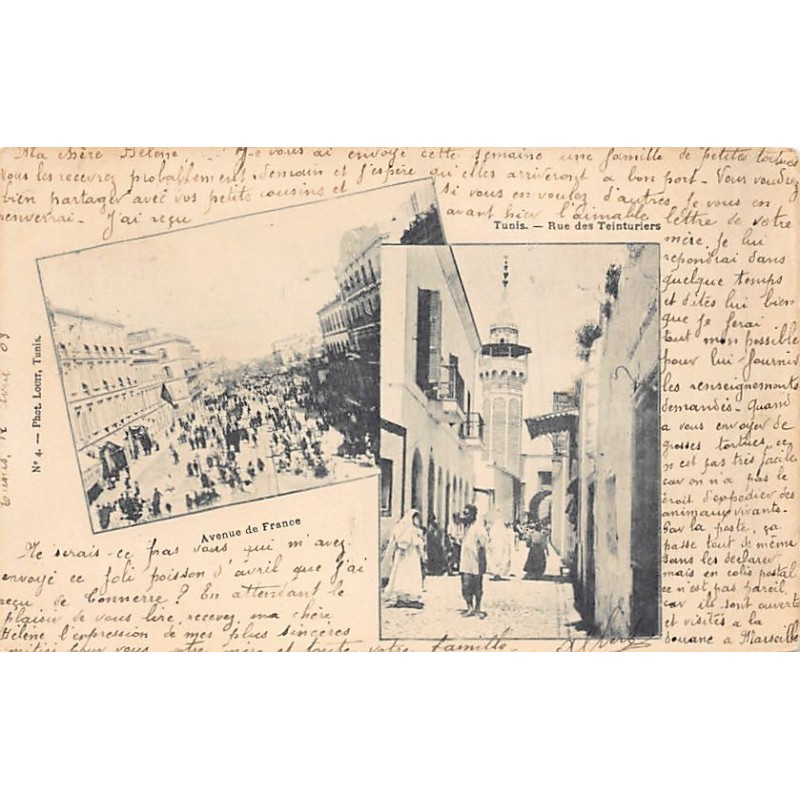 Ma chère Hélène Je vous ai envoyé cette semaine une famille de petites tortues
Vous les recevrez probablement demain et j'espère qu'elles arriveront à bon port - Vous voudrez
bien partager avec vos petits cousins et si vous en voulez d'autres je vous en
enverrai - J'ai reçu avant hier l'aimable lettre de votre
mère. Je lui
repondrai dans
quelque temps
et dites lui bien
que je ferai
tout mon possible
pour lui fournir
les renseignements
demandés - Quand
a vous envoyer de
grosses tortues, ce
n'est pas très facile
car on n'a pas le
droit d'expédier des
animaux vivants -
Par la poste, ça
passe tout de même
sans les déclarer
mais en colis postal
ce n'est pas pareil
car ils sont ouverts
et visités a la
douane a Marseille
Tunis. — Rue des Teinturiers
Nº 4. — Phot. LOUIT, Tunis.
Tunis,
Avenue de France
Ne serais-ce pas vous qui m'avez
envoyé ce joli poisson d'avril que j'ai
reçu de Tonnerre ? En attendant le
plaisir de vous lire, recevez ma chère
Hélène l'expression de mes plus sincères
amitiés pour vous votre mère et toute votre famille -